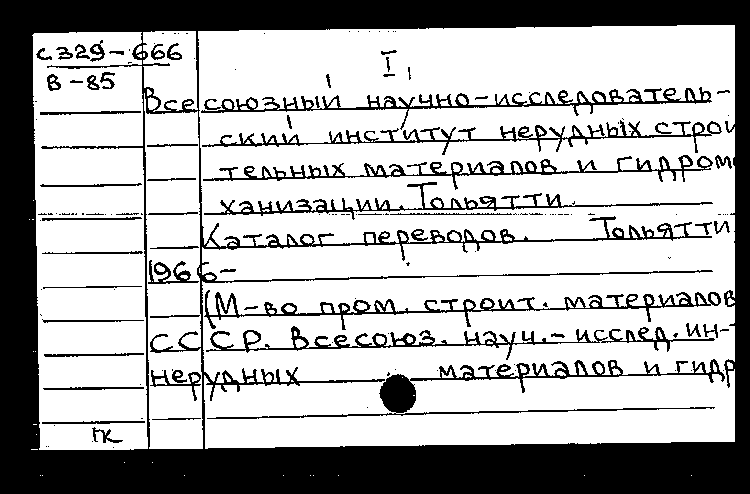 с.329-666
I
В-85
Всесоюзный научно-исследователь-
ский институт нерудных строи
тельных материалов и гидроме
ханизации. Тольятти.
Каталог переводов. Тольятти
1966-
(М-во пром. строит. материалов
СССР. Всесоюз. науч.-исслед. ин-т
нерудных материалов и гидр
гк